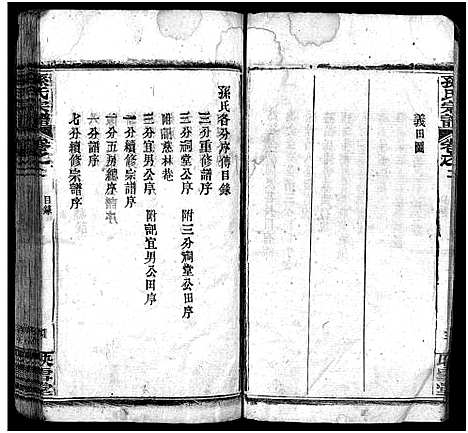 孫氏宗譜 卷之二
義田圖
孫氏各分序傳目錄
三分重修譜序
三分祠堂公序 附三分祠堂公田序
附記慈林菴
三分宜男公序 附記宜男公田序
一分續修宗譜序
六分五房總序
六分譜序
七分續修宗譜序
孫氏宗譜 卷之二 目錄